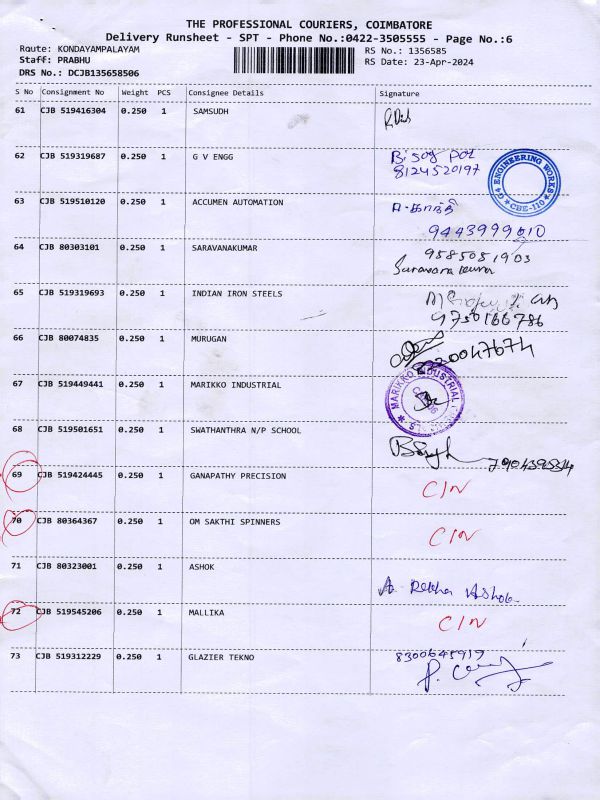 THE PROFESSIONAL COURIERS, COIMBATORE
Delivery Runsheet - SPT - Phone No.:0422-3505555 - Page No.:6
Route: KONDAYAMPALAYAM
RS No.: 1356585
Staff: PRABHU
RS Date: 23-Apr-2024
DRS No.: DCJB135658506
S No Consignment No Weight PCS Consignee Details Signature
61 CJB 519416304 0.250 1 SAMSUDH
62 CJB 519319687 0.250 1 G V ENGG
8124520197
G4 ENGINEERING WORKS
CBE-110
63 CJB 519510120 0.250 1 ACCUMEN AUTOMATION
9443999010
64 CJB 80303101 0.250 1 SARAVANAKUMAR 9585051903
Saravana kumar
65 CJB 519319693 0.250 1 INDIAN IRON STEELS
9750166786
66 CJB 80074835 0.250 1 MURUGAN
67 CJB 519449441 0.250 1 MARIKKO INDUSTRIAL
MARIKKO INDUSTRIAL
68 CJB 519501651 0.250 1 SWATHANTHRA N/P SCHOOL
69 CJB 519424445 0.250 1 GANAPATHY PRECISION CIN
70 CJB 80364367 0.250 1 OM SAKTHI SPINNERS CIN
71 CJB 80323001 0.250 1 ASHOK
A. Rekha Ashok
72 CJB 519545206 0.250 1 MALLIKA CIN
73 CJB 519312229 0.250 1 GLAZIER TEKNO 8300645917